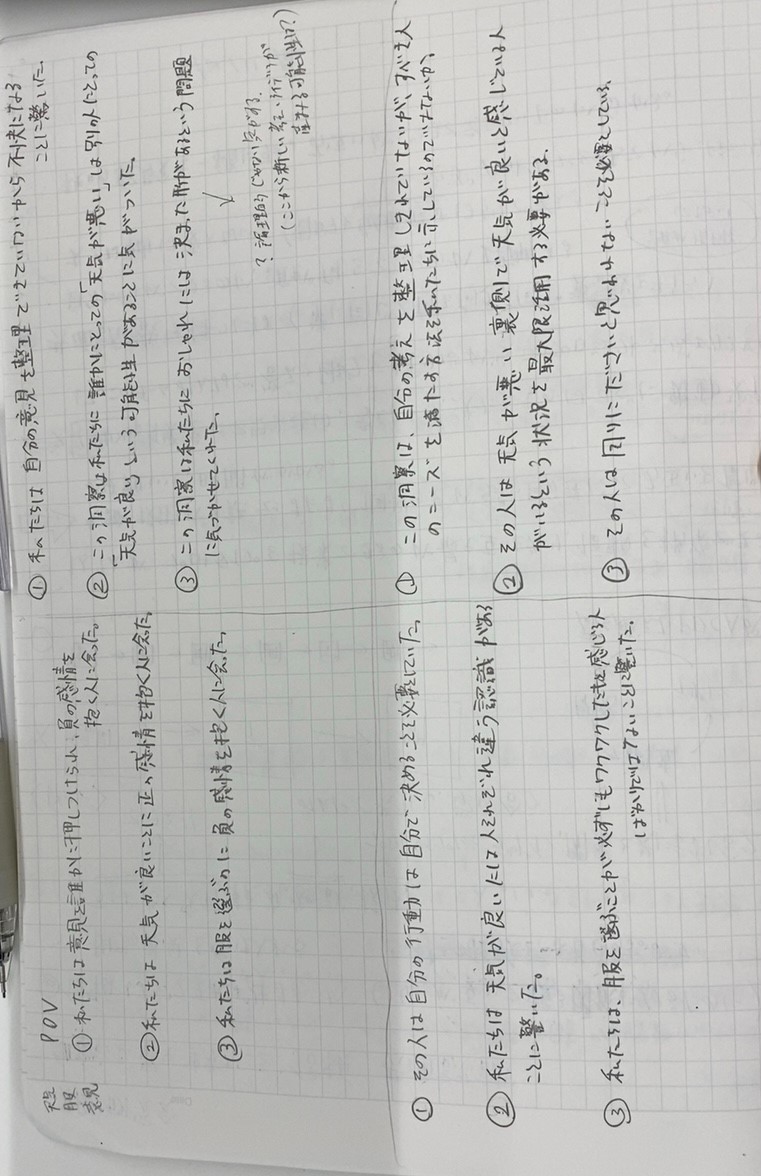 天気
服
意見
POV
① 私たちは意見を誰かに押しつけられ、負の感情を
抱く人に会った。
② 私たちは天気が良いことに正の感情を抱く人に会った。
③ 私たちは服を選ぶのに負の感情を抱く人に会った。
① 私たちは自分の意見を整理できていないから不快になる
ことに驚いた。
② この洞察は私たちに誰かにとっての「天気が悪い」は別の人にとっての
「天気が良い」という可能性があることに気がついた。
③ この洞察は私たちにおしゃれには決まった形があるという問題
に気づかせてくれた。
↓
? 論理的じゃない気がする。
(ここから新しい考え、行動が
産まれる可能性は?)
① その人は自分の行動は自分で決めることを必要としていた。
② 私たちは天気が良いには人それぞれ違う認識がある
ことに驚いた。
③ 私たちは、服を選ぶことが必ずしもワクワクした気を感じる人
ばかりではないことに驚いた。
① この洞察は、自分の考えを整理しきれていないが、すべき人
のニーズを満たす方法を私たちに示しているのではないか。
② その人は天気が悪い裏側で天気が良いと感じている人
がいるという状況を最大限活用する必要がある。
③ その人は周りにださいと思われないことを必要としている。